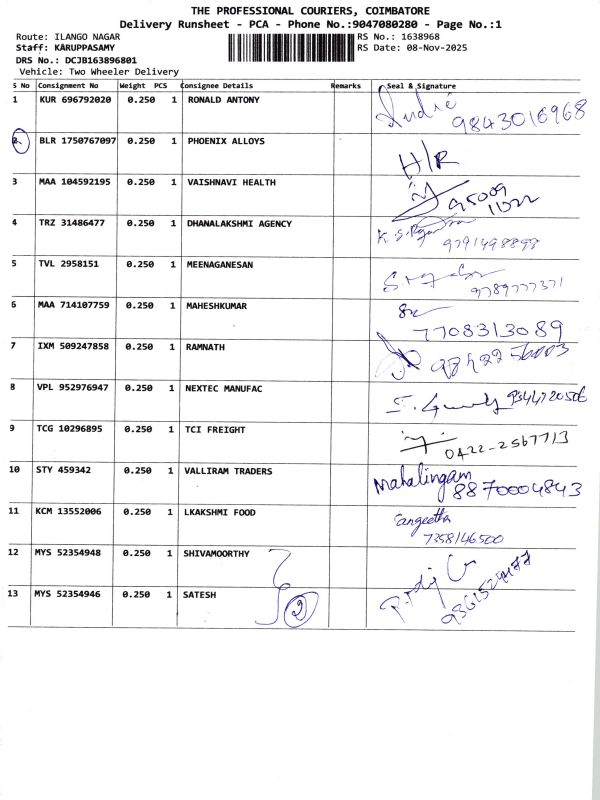 THE PROFESSIONAL COURIERS, COIMBATORE
Delivery Runsheet - PCA - Phone No.:9047080280 - Page No.:1
Route: ILANGO NAGAR RS No.: 1638968
Staff: KARUPPASAMY RS Date: 08-Nov-2025
DRS No.: DCJB163896801
Vehicle: Two Wheeler Delivery
S No Consignment No Weight PCS Consignee Details Remarks Seal & Signature
1 KUR 696792020 0.250 1 RONALD ANTONY
9843016968
2 BLR 1750767097 0.250 1 PHOENIX ALLOYS
H/R
3 MAA 104592195 0.250 1 VAISHNAVI HEALTH
95009
4 TRZ 31486477 0.250 1 DHANALAKSHMI AGENCY
9791498898
5 TVL 2958151 0.250 1 MEENAGANESAN
9789777371
6 MAA 714107759 0.250 1 MAHESHKUMAR
7708313089
7 IXM 509247858 0.250 1 RAMNATH
8 VPL 952976947 0.250 1 NEXTEC MANUFAC
9 TCG 10296895 0.250 1 TCI FREIGHT
0422-2567713
10 STY 459342 0.250 1 VALLIRAM TRADERS
Mahalingam
8870004843
11 KCM 13552006 0.250 1 LKAKSHMI FOOD
Sangeetha
7358146500
12 MYS 52354948 0.250 1 SHIVAMOORTHY
13 MYS 52354946 0.250 1 SATESH
2